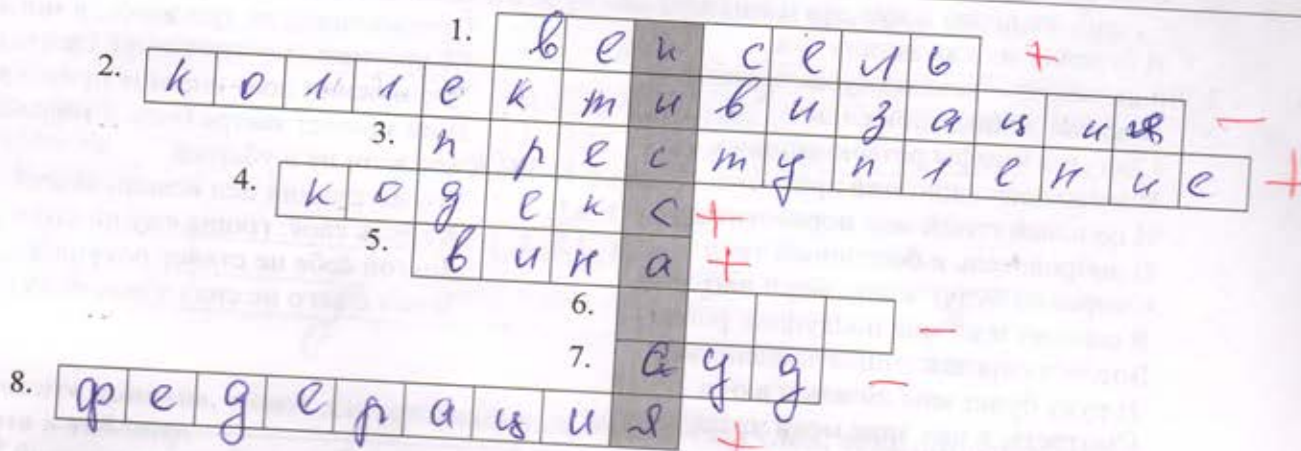 1. вексель +
2. коллективизация −
3. преступление +
4. кодекс +
5. вина +
6. −
7. ауд −
8. федерация +